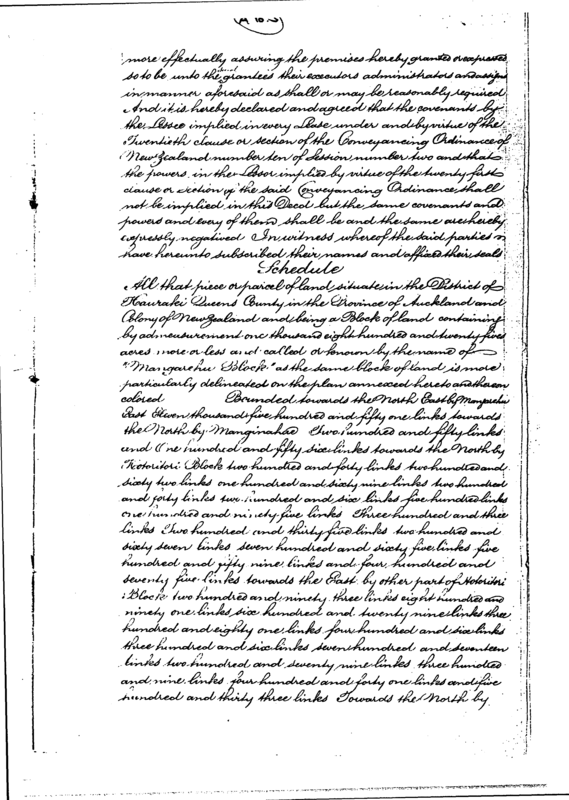 more effectually assuring the premises hereby granted or expressed
so to be unto the said grantees their executors administrators and assigns
in manner aforesaid as shall or may be reasonably required
And it is hereby declared and agreed that the covenants by
the Lessee implied in every Lease under and by virtue of the
Twentieth clause or section of the Conveyancing Ordinance of
New Zealand number ten of Session number two and that
the powers in the Lessor implied by virtue of the twenty first
clause or section of the said Conveyancing Ordinance shall
not be implied in this Deed but the same covenants and
powers and every of them shall be and the same are hereby
expressly negatived In witness whereof the said parties
have hereunto subscribed their names and affixed their seals
Schedule
All that piece or parcel of land situate in the District of
Hauraki Queens County in the Province of Auckland and
Colony of New Zealand and being a Block of land containing
by admeasurement one thousand eight hundred and twenty five
acres more or less and called or known by the name of
"Mangarehu Block" as the same block of land is more
particularly delineated on the plan annexed hereto and thereon
colored Bounded towards the North East by Mangarehu
East Eleven thousand five hundred and fifty one links towards
the North by Manginahae Two hundred and fifty links
and One hundred and fifty six links towards the North by
Kotoritori Block two hundred and forty links two hundred and
sixty two links one hundred and sixty nine links two hundred
and forty links two hundred and six links five hundred links
one hundred and ninety five links Three hundred and three
links Two hundred and thirty five links two hundred and
sixty seven links seven hundred and sixty five links five
hundred and fifty nine links and four hundred and
seventy five links towards the East by other part of Hotoritori
Block two hundred and ninety three links eight hundred and
ninety one links six hundred and twenty nine links three
hundred and eighty one links four hundred and six links
three hundred and six links seven hundred and seventeen
links two hundred and seventy nine links three hundred
and nine links four hundred and forty one links and five
hundred and thirty three links Towards the North by